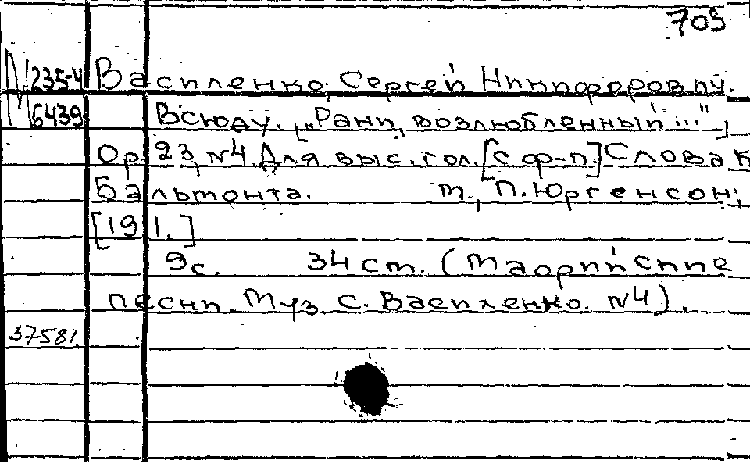 703
N235-4 Василенко, Сергей Никифорович.
M6439 Всюду. ["Рани, возлюбленный..."]
Ор. 23 N4. Для выс. гол. [с ф-п] Слова К
Бальмонта. М., П. Юргенсон,
[191.]
9с. 34 см. (Маорийские
песни. Муз. С. Василенко. N4).
37581